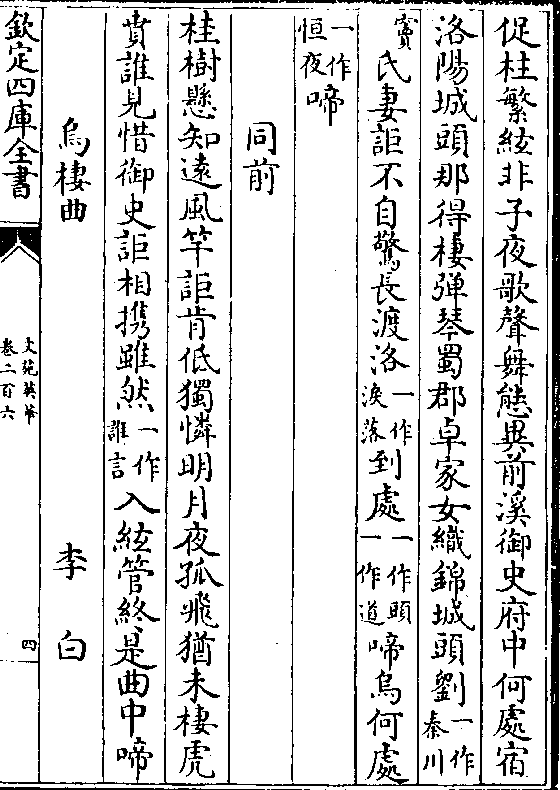 促柱繁絃非子夜歌聲舞態異前溪御史府中何處宿
洛陽城頭那得棲彈琴蜀郡卓家女織錦城頭劉一作秦川
竇氏妻詎不自驚長渡洛一作淚落到處一作頭一作道啼烏何處
一作恒夜啼
同前
桂樹懸知遠風竿詎肯低獨憐明月夜孤飛猶未棲虎
賁誰見惜御史詎相携雖然一作誰言入絃管終是曲中啼
烏棲曲 李白
欽定四庫全書
文苑英華
卷二百六
四